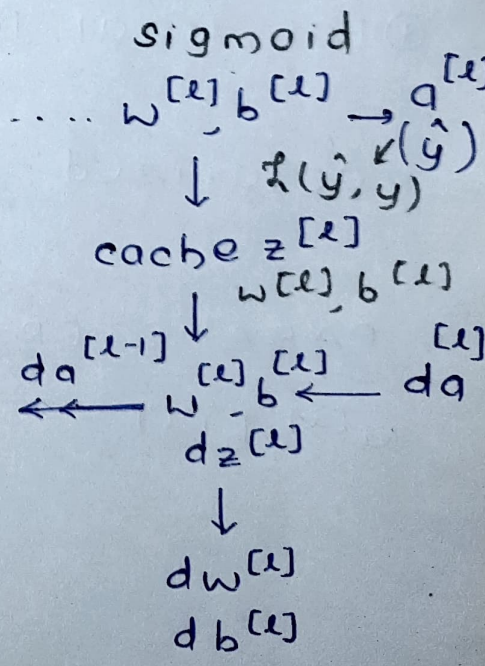 sigmoid
..... w^[l], b^[l] → a^[l]
↙ (ŷ)
↓ L(ŷ, y)
cache z^[l]
↓ w^[l], b^[l]
da^[l-1] ↞ w^[l], b^[l] ← da^[l]
dz^[l]
↓
dw^[l]
db^[l]